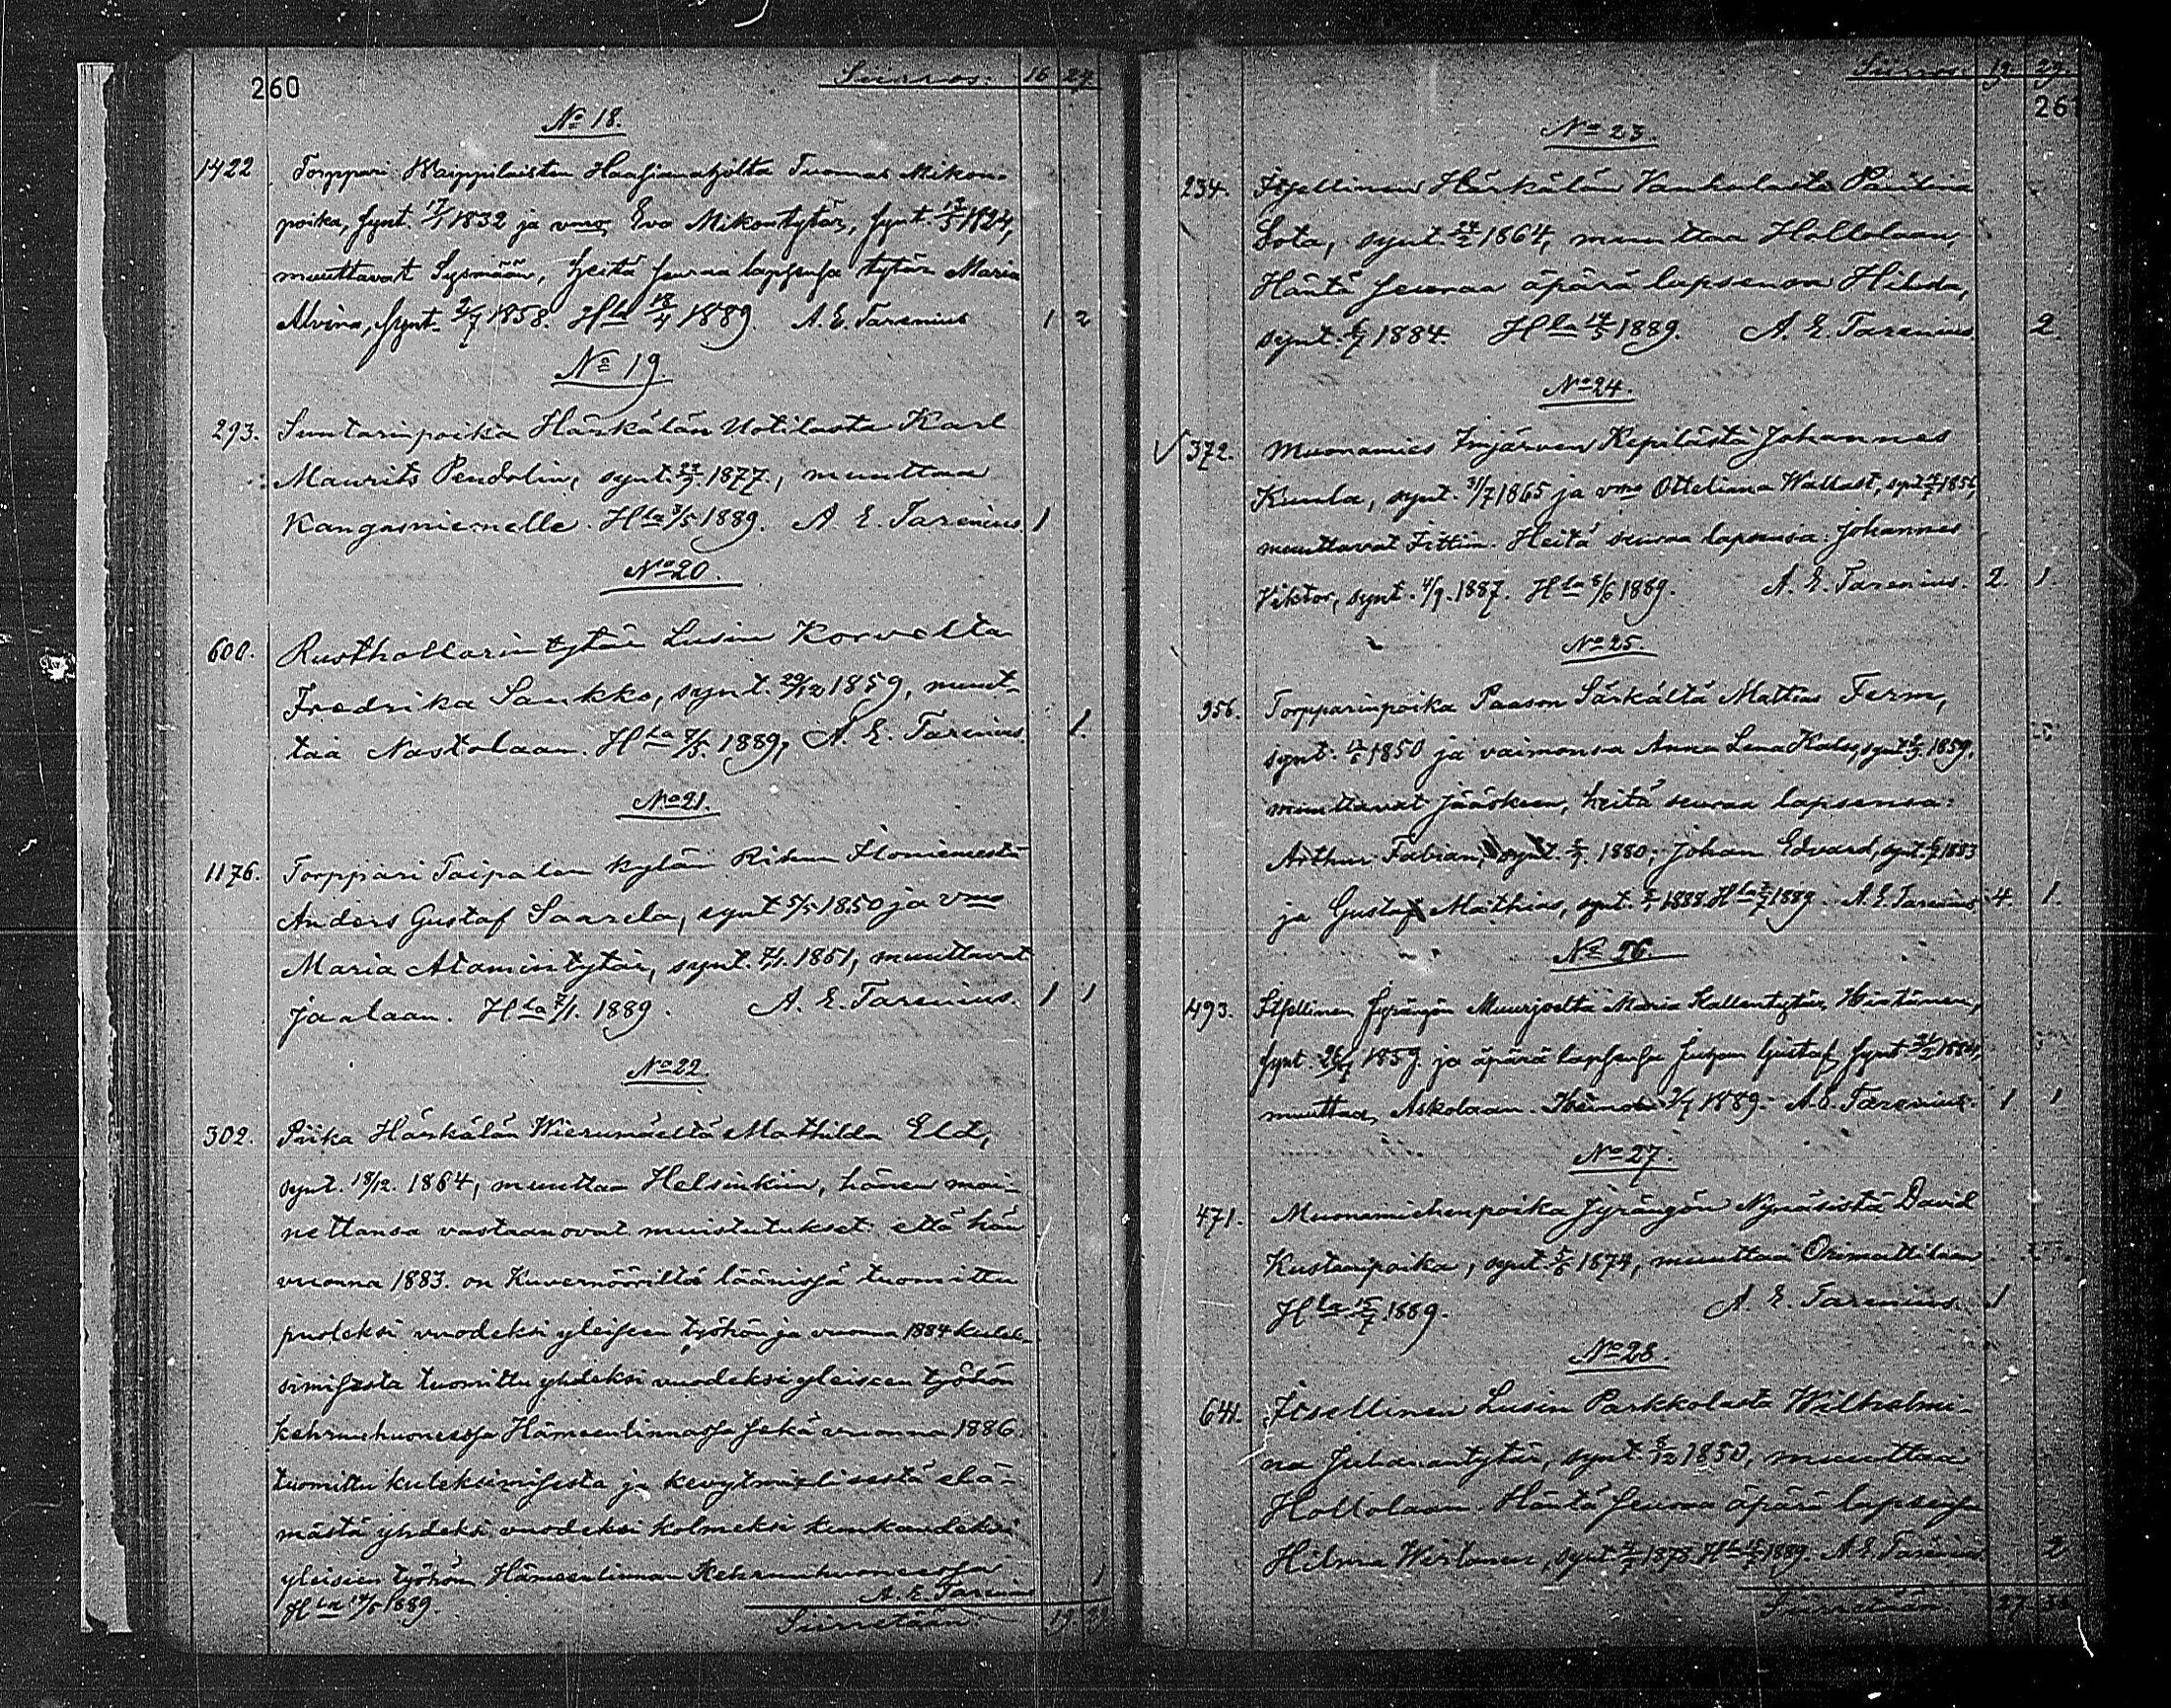 260
Siirros. 16 27.
No 18.
1422 Torppari Waippilaisten Haahjamatjolta Tuomas Mikon-
poika, synt. 1832 ja vmo Eva Mikontytär, synt. 1824,
muuttavat Sysmään, heitä seuraa lapsensa tytär Maria
Alvina, synt. 1858. Hla 18/4 1889. A. E. Tarenius 1 2
No 19.
293. Suntarinpoika Härkälän Uotilasta Karl
Maurits Pendolin, synt. 1877, muuttaa
Kangasniemelle. Hla 3/5 1889. A. E. Tarenius. 1
No 20.
600. Rusthollarintytär Lusin Korvelta
Fredrika Sankko, synt. 29/12 1859, muut-
taa Nastolaan. Hla 1889, A. E. Tarenius. 1.
No 21.
1176. Torppari Taipalen kylän Rihun Iloniemestä
Anders Gustaf Saarela, synt 5/5 1850 ja vmo
Maria Atamintytär, synt. 1851, muuttavat
Jaalaan. Hla 1889. A. E. Tarenius. 1 1
No 22.
302. Piika Härkälän Wierumäeltä Mathilda Eld,
synt. 18/12. 1864, muuttaa Helsinkiin, hänen mai-
nettansa vastaan ovat muistutukset: että hän
vuonna 1883. on Kuvernööriltä läänissä tuomittu
puoleksi vuodeksi yleiseen työhön ja vuonna 1884 kulek-
simisesta tuomittu yhdeksi vuodeksi yleiseen työhön
kehruuhuoneessa Hämeenlinnassa sekä vuonna 1886
tuomittu kuleksimisesta ja kevytmielisestä elä-
mästä yhdeksi vuodeksi kolmeksi kuukaudeksi
yleiseen työhön Hämeenlinnan Kehruuhuoneessa 1
Hla 1889. A. E. Tarenius
Siirretään. 19. 29
Siirros. 19. 29.
261
No 23.
234. Itsellinen Härkälän Vanhalasta Paulina
Sota, synt. 1864, muuttaa Hollolaan,
Häntä seuraa äpärä lapsensa Hilda,
synt. 1884. Hla 1889. A. E. Tarenius. 2
No 24.
√ 372. Muonamies Imjärven Kepilästä Johannes
Kuula, synt. 31/7 1865 ja vmo Otteliana Wallast, synt 1856,
muuttavat Iittiin. Heitä seuraa lapsensa: Johannes
Viktor, synt. 4/9. 1887. Hla 5/6 1889. A. E. Tarenius. 2. 1.
No 25.
956. Torpparinpoika Paason Särkältä Mattias Ferm,
synt. 1850 ja vaimonsa Anna Lena synt. 1859.
muuttavat Jääskeen, heitä seuraa lapsensa:
Arthur Fabian, synt. 1880; Johan Edvard, synt. 1883
ja Gustaf Mathias, synt. 1888. Hla 1889. A. E. Tarenius. 4. 1.
No 26.
493. Itsellinen Jyrängön Muurjoelta Maria Kallentytär Hintunen,
synt. 1859. ja äpärä lapsensa Juhan Gustaf, synt. 1884,
muuttaa Askolaan. Heinola 1889. A. E. Tarenius. 1 1
No 27.
471. Muonamiehenpoika Jyrängön Nynäsistä David
Kustaanpoika, synt. 1874, muuttaa Orimattilaan
Hla 15/7 1889. A. E. Tarenius. 1
No 28.
641. Itsellinen Lusin Parkkolasta Wilhelmi-
na Juhanantytär, synt. 1850, muuttaa
Hollolaan. Häntä seuraa äpärä lapsensa
Hilma Wirtanen, synt. 1878. Hla 1889. A. E. Tarenius. 2
Siirretään. 27